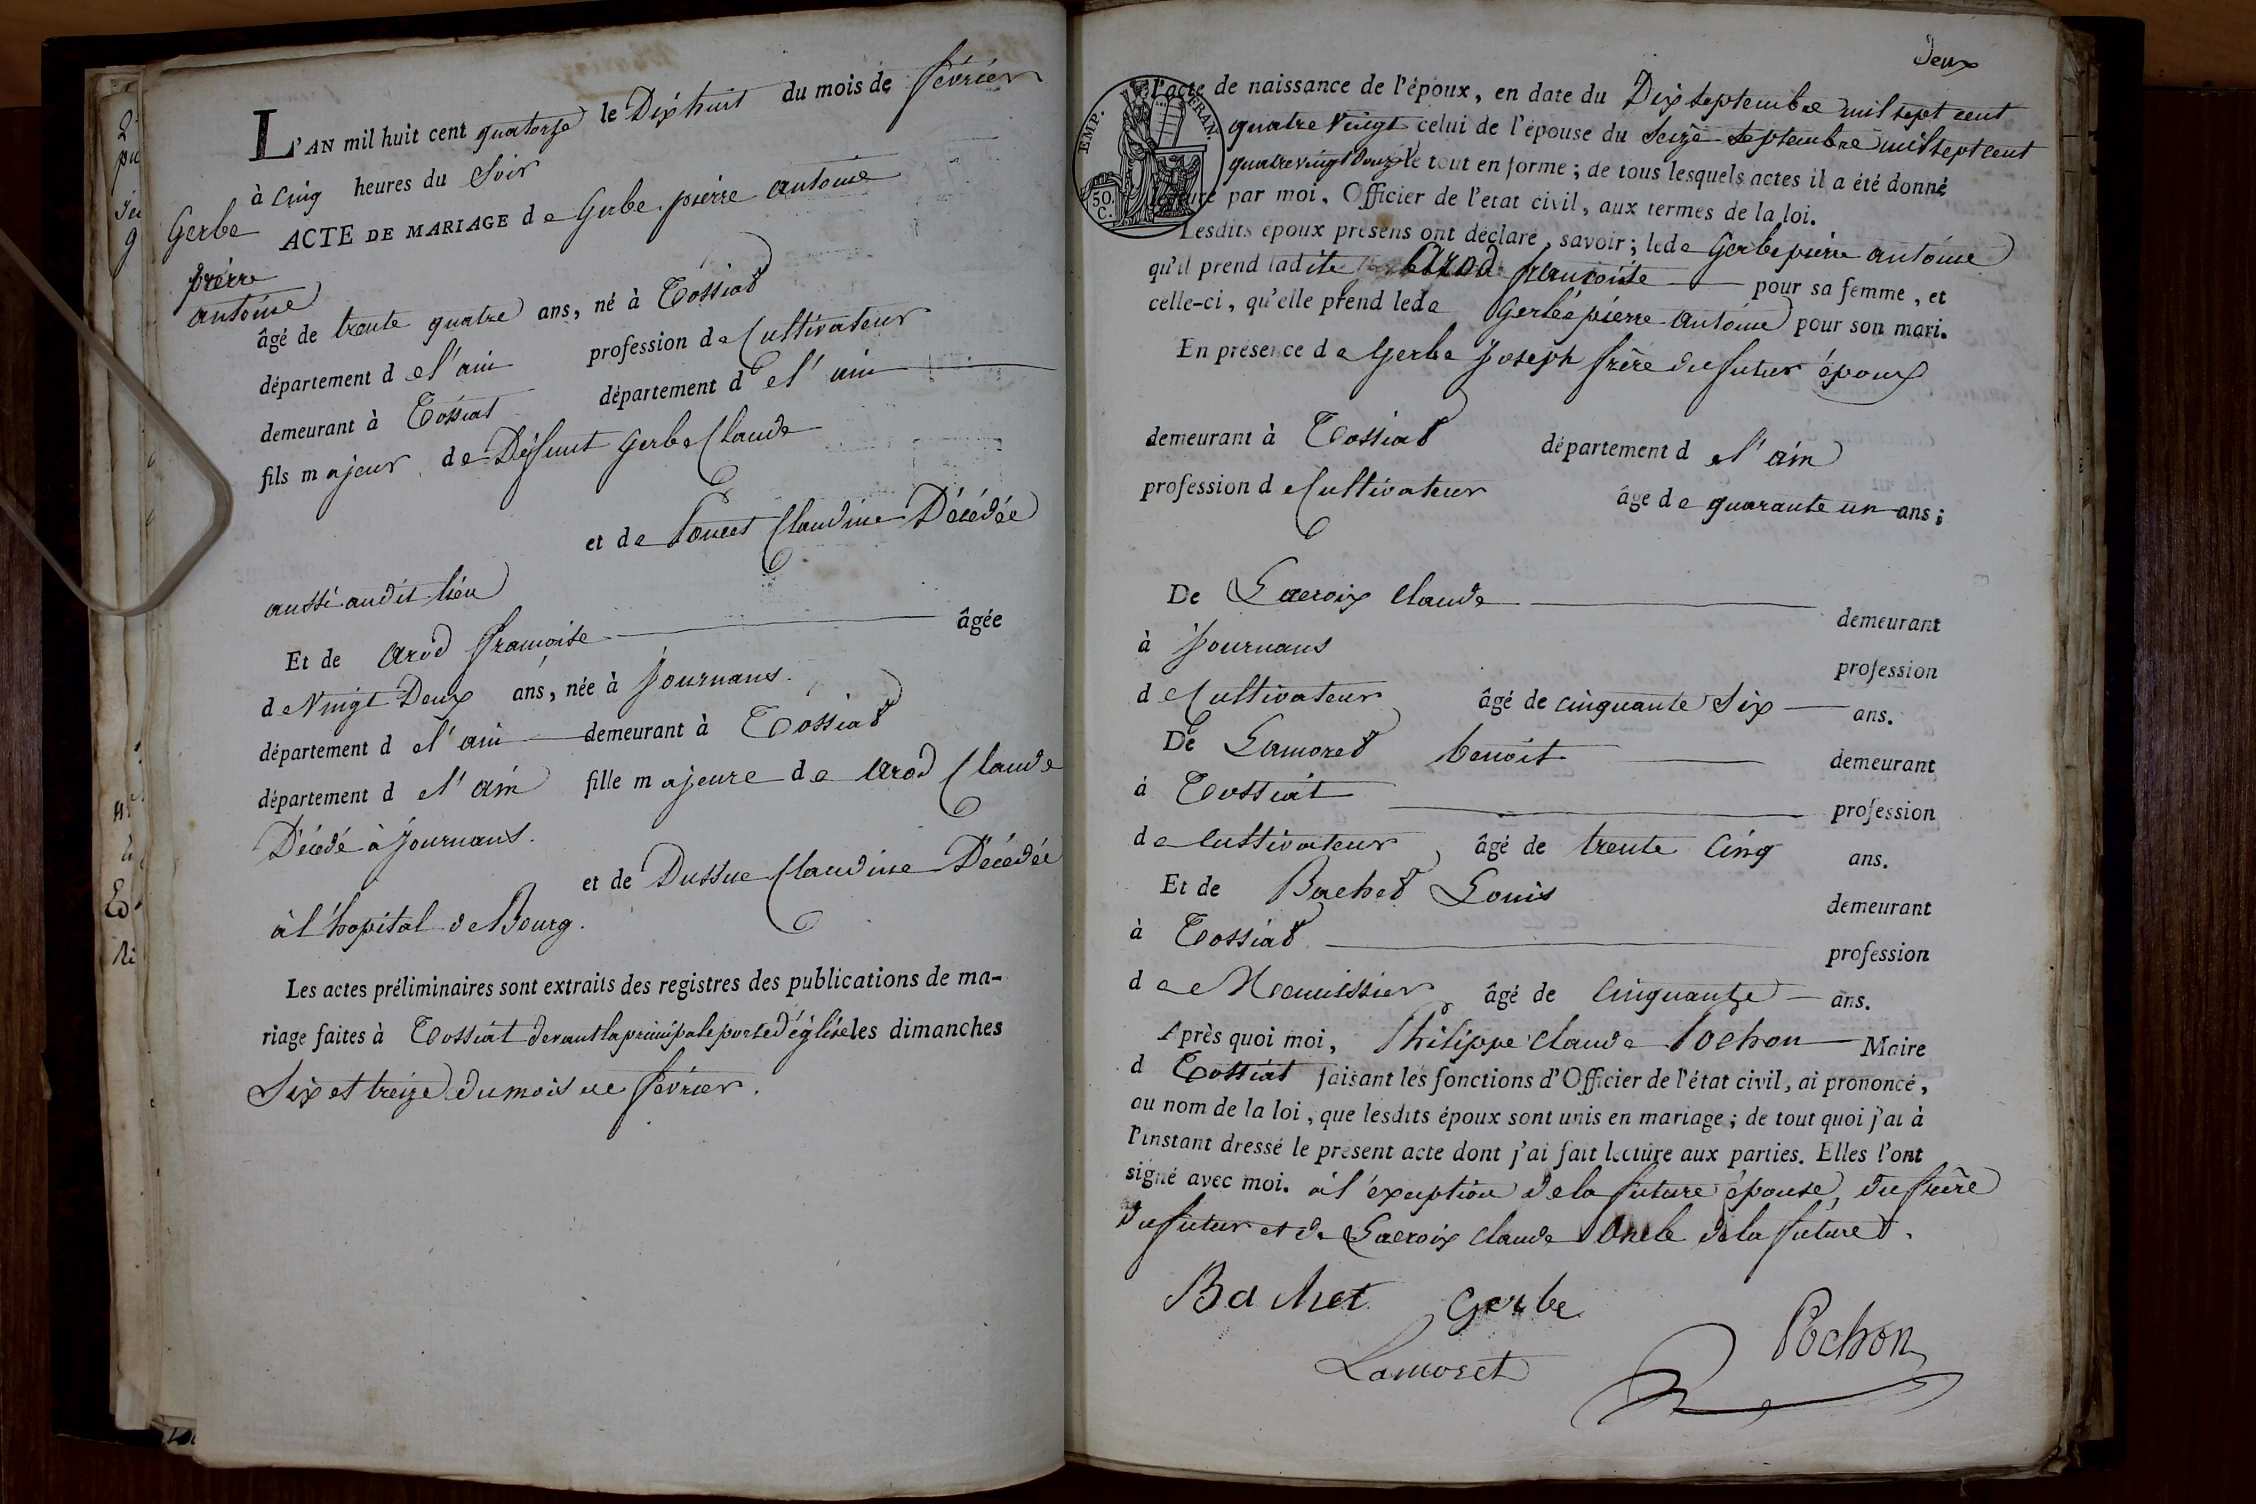 L'AN mil huit cent quatorze le Dix huit du mois de février
à cinq heures du Soir
Gerbe
pierre
antoine
ACTE DE MARIAGE de Gerbe pierre antoine
âgé de trente quatre ans, né à Tossiat
département de l'ain profession de Cultivateur
demeurant à Tossiat département de l'ain
fils majeur de Défunt Gerbe Claude
et de Poncet Claudine Décédée
aussi audit lieu
Et de Arod françoise âgée
de Vingt Deux ans, née à Journans.
département de l'ain demeurant à Tossiat
département de l'ain fille majeure de Arod Claude
Décédé à Journans.
et de Dussue Claudine Décédée
à l'hopital de Bourg.
Les actes préliminaires sont extraits des registres des publications de ma-
riage faites à Tossiat devant la principale porte d'église les dimanches
Six et treize du mois de février.
deux
l'acte de naissance de l'époux, en date du Dix septembre mil sept cent
quatre Vingt celui de l'épouse du Seize septembre mil sept cent
quatre vingt douze le tout en forme ; de tous lesquels actes il a été donné
lecture par moi, Officier de l'etat civil, aux termes de la loi.
EMP. FRAN.
50.
C.
Lesdits époux présens ont déclaré, savoir ; led e Gerbe pierre antoine
qu'il prend ladite Arod francoise pour sa femme, et
celle-ci, qu'elle prend led e Gerbe pierre Antoine pour son mari.
En présence de Gerbe Joseph frère du futur époux
demeurant à Tossiat département de l'ain
profession de Cultivateur âgé de quarante un ans ;
De Lacroix Claude demeurant
à Journans profession
de Cultivateur âgé de cinquante Six ans.
De Lamoret benoit demeurant
à Tossiat profession
de cultivateur âgé de trente Cinq ans.
Et de Bachet Louis demeurant
à Tossiat profession
de âgé de Cinquante ans.
Après quoi moi, Philippe Claude Pochon Maire
d Tossiat faisant les fonctions d'Officier de l'état civil, ai prononcé,
au nom de la loi, que lesdits époux sont unis en mariage ; de tout quoi j'ai à
l'instant dressé le présent acte dont j'ai fait lecture aux parties. Elles l'ont
signé avec moi. à l'exception de la future épouse, du frère
du futur et de Lacroix Claude Oncle de la future.
Bachet Gerbe
Pochon
Lamoret